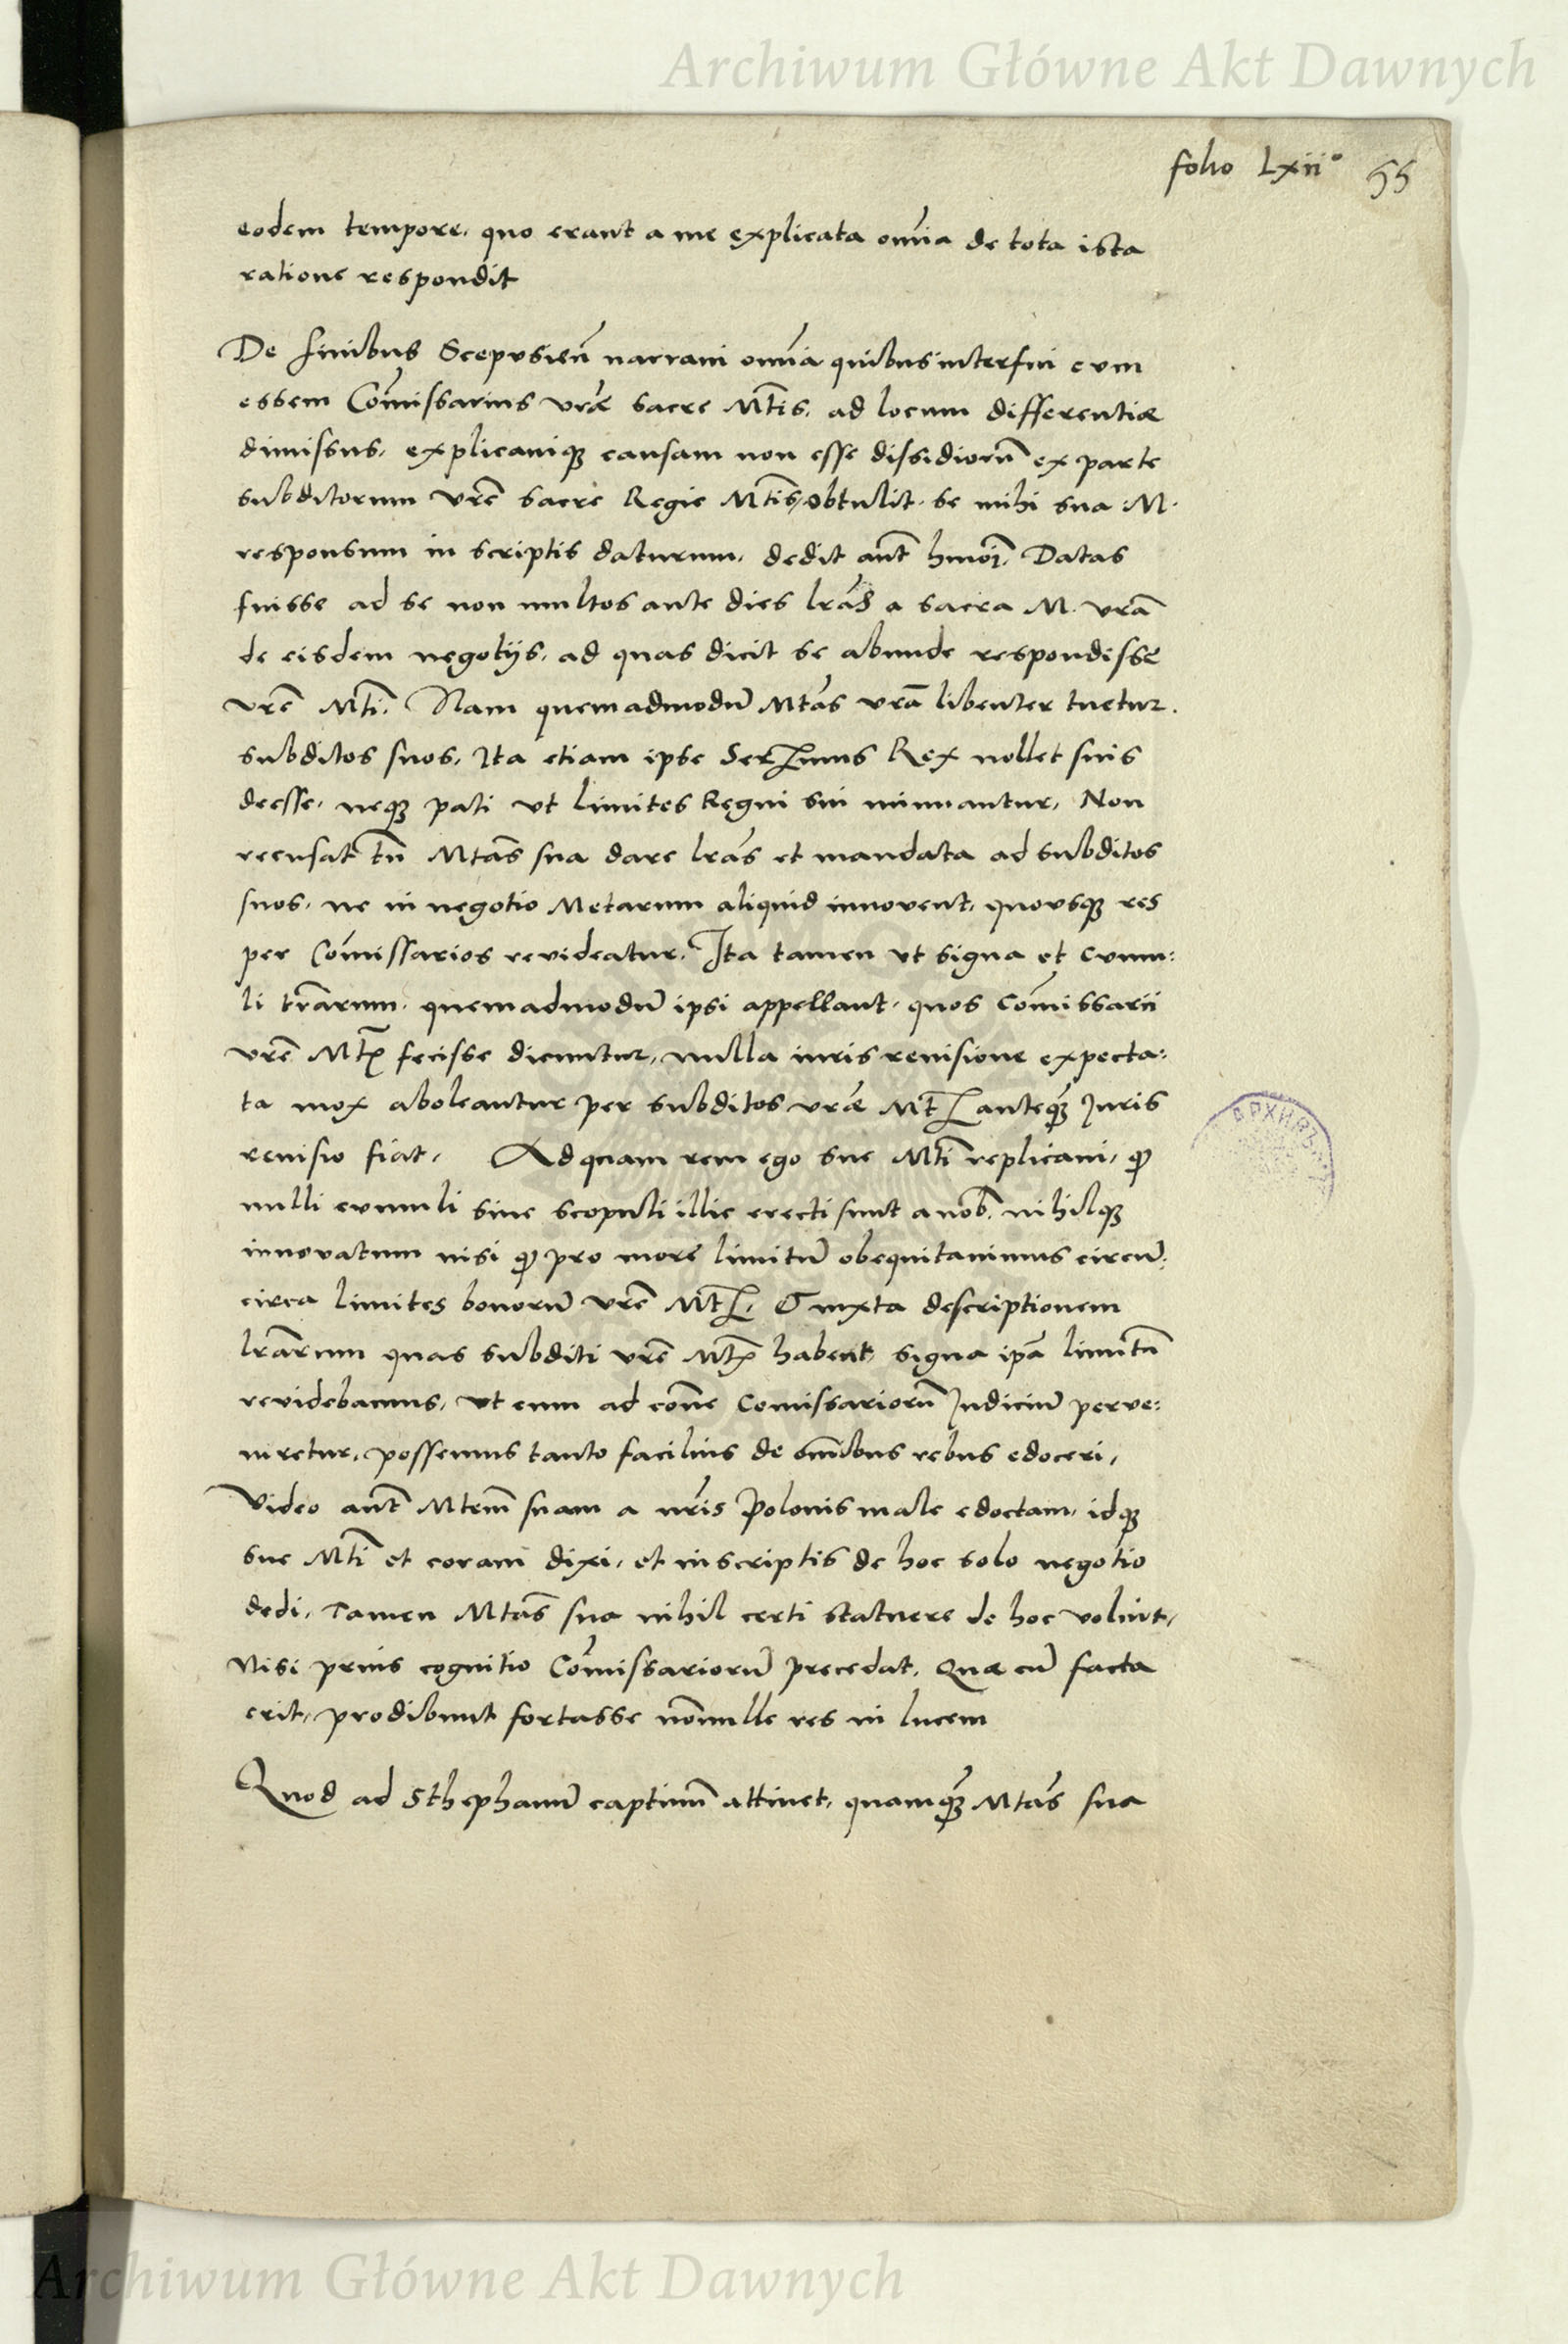 Archiwum Główne Akt Dawnych
folio Lxii° 55
eodem tempore, quo erant a me explicata om̃ia de tota ista
ratione respondit
De finibus Scepusieñ narraui om̃ia quibus interfui cum
essem Com̃issarius vr̃æ sacre Mt̃is, ad locum differentiæ
dimissus, explicauiqꝫ causam non esse dissidiorũ ex parte
subditorum vr̃e sacre Regie Mt̃is, obtulit se mihi sua M.
responsum in scriptis daturum, dedit aut̃ hmõi, Datas
fuisse ad se non multos ante dies lr̃as a sacra M. vr̃a
de eisdem negotijs, ad quas dicit se abunde respondisse
vr̃e Mt̃i, Nam quemadmodũ Mt̃as vr̃a libenter tuetur
subditos suos, Ita etiam ipse Ser̃mus Rex nollet suis
deesse, neqꝫ pati vt limites Regni sui minuantur, Non
recusat tñ Mt̃as sua dare lr̃as et mandata ad subditos
suos, ne in negotio Metarum aliquid innovent, quousqꝫ res
per Com̃issarios revideatur, Ita tamen vt signa et Cumu:
li tr̃arum, quemadmodũ ipsi appellant, quos Com̃issarii
vr̃e Mt̃ꝭ fecisse dicuntur, nulla iuris reuisione expecta:
ta mox aboleantur per subditos vr̃æ Mt̃ꝭ anteqꝫ̃ Juris
reuisio fiat, Ad quam rem ego sue Mt̃i replicaui, ꝙ
nulli cumuli siue scopuli illic erecti sunt a nob̃, nihilqꝫ
innovatum nisi ꝙ pro more limitũ obequitauimus circũ:
circa limites bonorũ vr̃e Mt̃ꝭ, & iuxta descriptionem
lr̃arum quas subditi vr̃e Mt̃ꝭ habent, signa ip̃a limitũ
revidebamus, vt cum ad com̃e Comissariorũ Judiciũ perve:
niretur, possemus tanto facilius de om̃ibus rebus edoceri,
Video aut̃ Mtem̃ suam a nr̃is Polonis male edoctam, idqꝫ
sue Mt̃i et coram dixi, et in scriptis de hoc solo negotio
dedi, Tamen Mt̃as sua nihil certi statuere de hoc voluit,
Nisi prius cognitio Com̃issariorũ precedat, Quæ cũ facta
erit, prodibunt fortasse nõnulle res in lucem
Quod ad Sthephanũ captiuũ attinet, quamqꝫ̃ Mt̃as sua
АРХИВЪ
Archiwum Główne Akt Dawnych